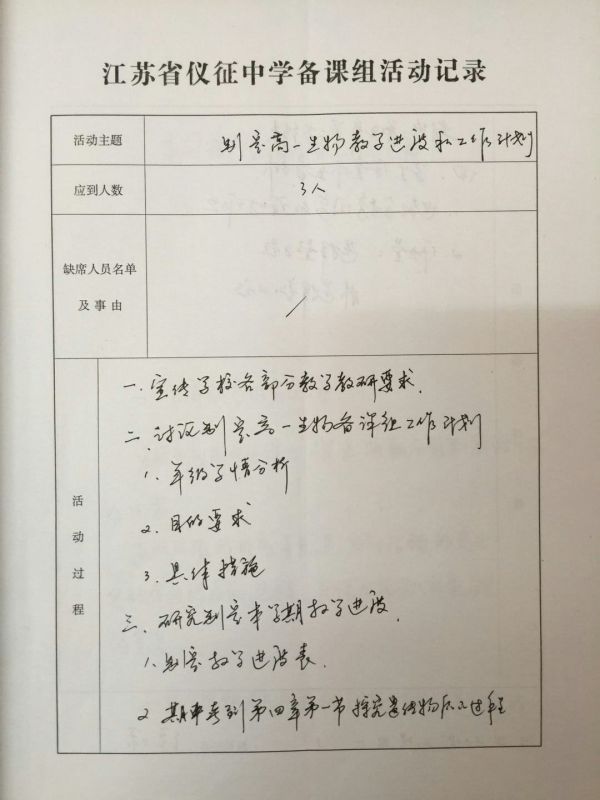 江苏省仪征中学备课组活动记录
活动主题
制定高一生物教学进度和工作计划
应到人数
3人
缺席人员名单
及事由
活动过程
一、宣传学校各部分教学教研要求.
二、讨论制定高一生物备课组工作计划
1. 年级学情分析
2. 目的要求
3. 具体措施
三、研究制定本学期教学进度.
1. 制定教学进度表.
2 期中考到第四章第一节探究遗传物质的过程